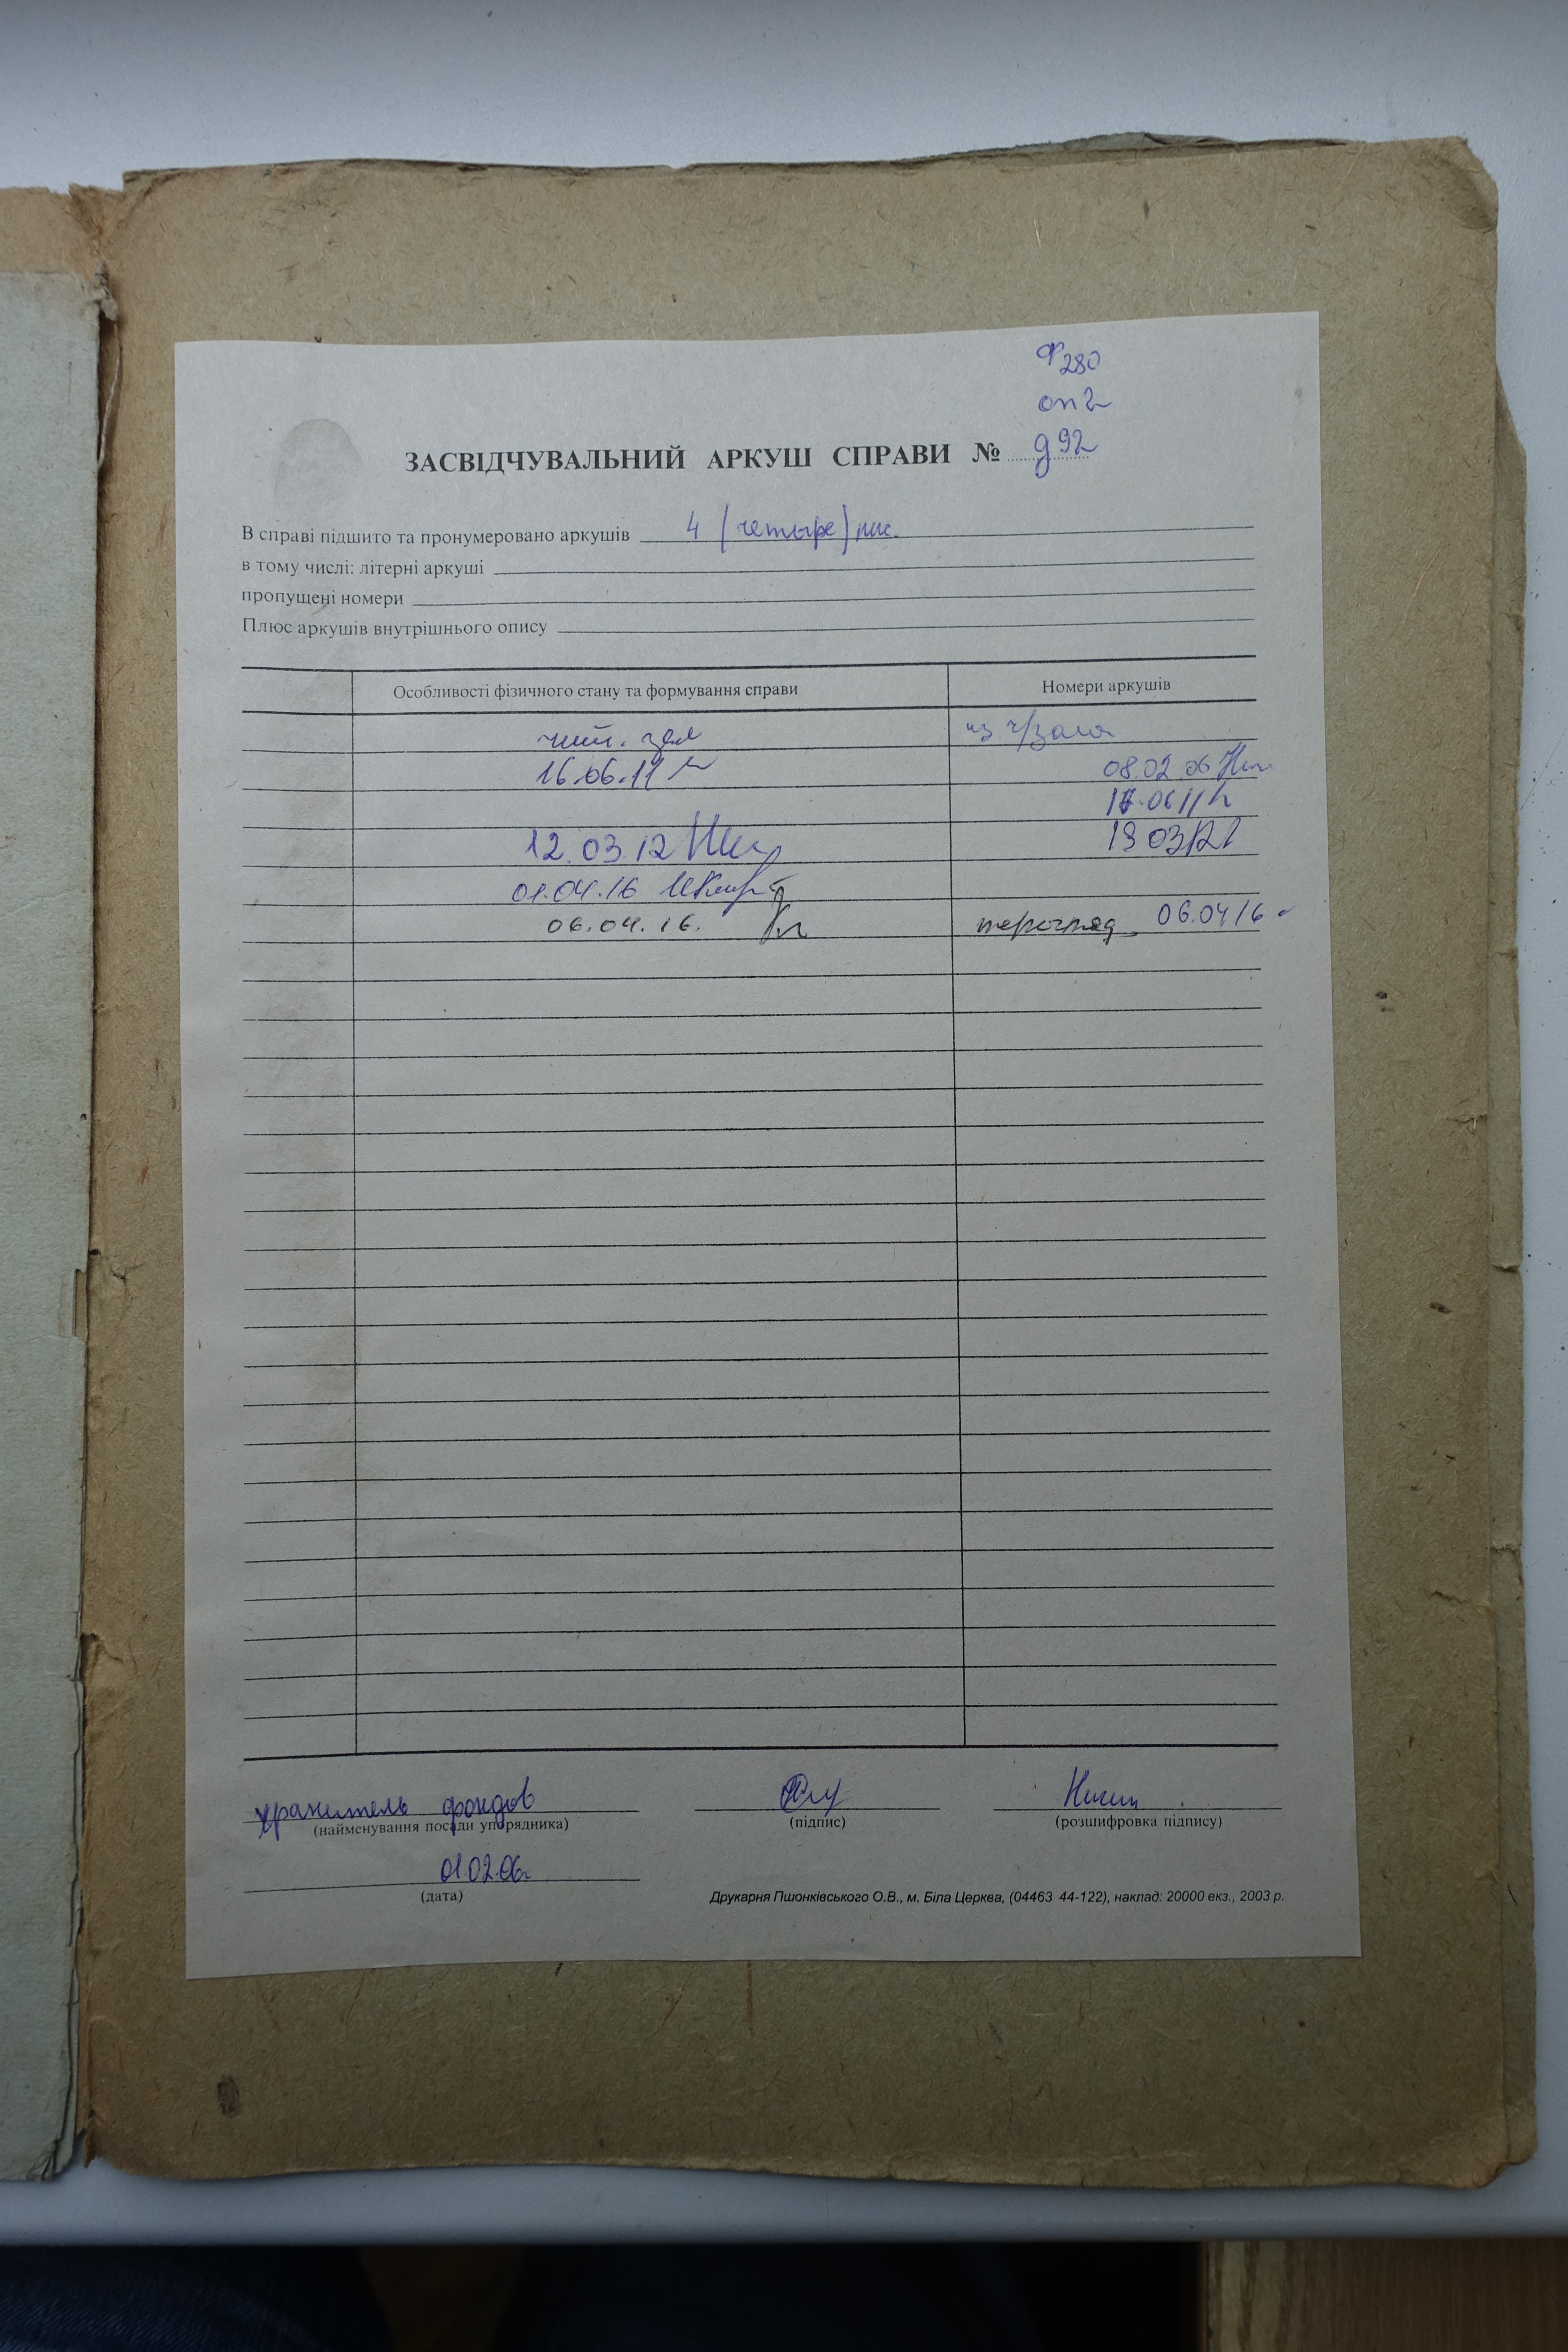 Ф 280
оп 2
ЗАСВІДЧУВАЛЬНИЙ АРКУШ СПРАВИ № д 92
В справі підшито та пронумеровано аркушів 4 (четыре) лис.
в тому числі: літерні аркуші
пропущені номери
Плюс аркушів внутрішнього опису
Особливості фізичного стану та формування справи Номери аркушів
чит. зал из ч/зала
16.06.11 08.02.06
06 11
12.03.12 13 03 12
01.04.16
06.04.16. перегляд 06.04 16
хранитель фондов
(найменування посади упорядника) (підпис) (розшифровка підпису)
01.02.06
(дата)
Друкарня Пшонківського О.В., м. Біла Церква, (04463 44-122), наклад: 20000 екз., 2003 р.